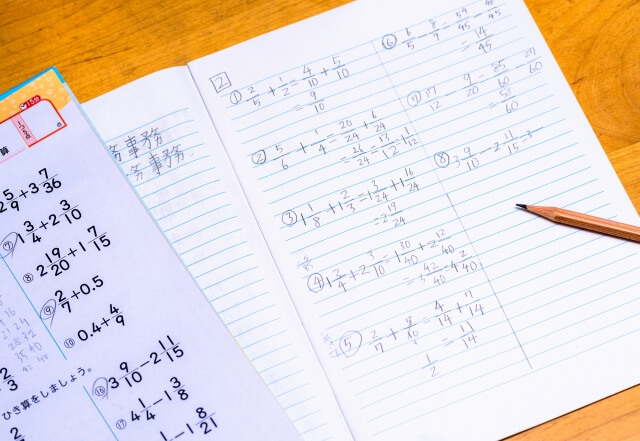 15分
算
2 5/9 + 3 7/36
⑦ 1 3/4 + 2 3/10
⑧ 2 19/20 + 1 7/15
⑨ 2/7 + 0.5
⑩ 0.4 + 4/9
ひき算をしましょう。
⑯ 3 9/10 - 2 11/15
⑰ 4 1/4 - 1 3/8
1/ - 1 8/21
務事務
務事務
2
① 2/5 + 1/2 = 4/10 + 5/10
= 9/10
② 5/6 + 1/4 = 20/24 + 6/24
= 26/24 = 13/12 = 1 1/12
③ 1 1/8 + 1 2/3 = 1 3/24 + 1 16/24
= 2 19/24
④ 1 3/4 + 2 3/10 = 1 30/40 + 2 12/40
= 3 42/40 = 4 2/40
⑤ 2/7 + 5/10 = 4/14 + 7/14
1/2 = 11/14
⑥ 6/5 - 8/9 = 54/45 - 40/45
= 14/45
⑦ 17/12 - 9/20 = 85/60 - 27/60
= 58/60
⑧ 3 9/10 - 2 11/15 = 3